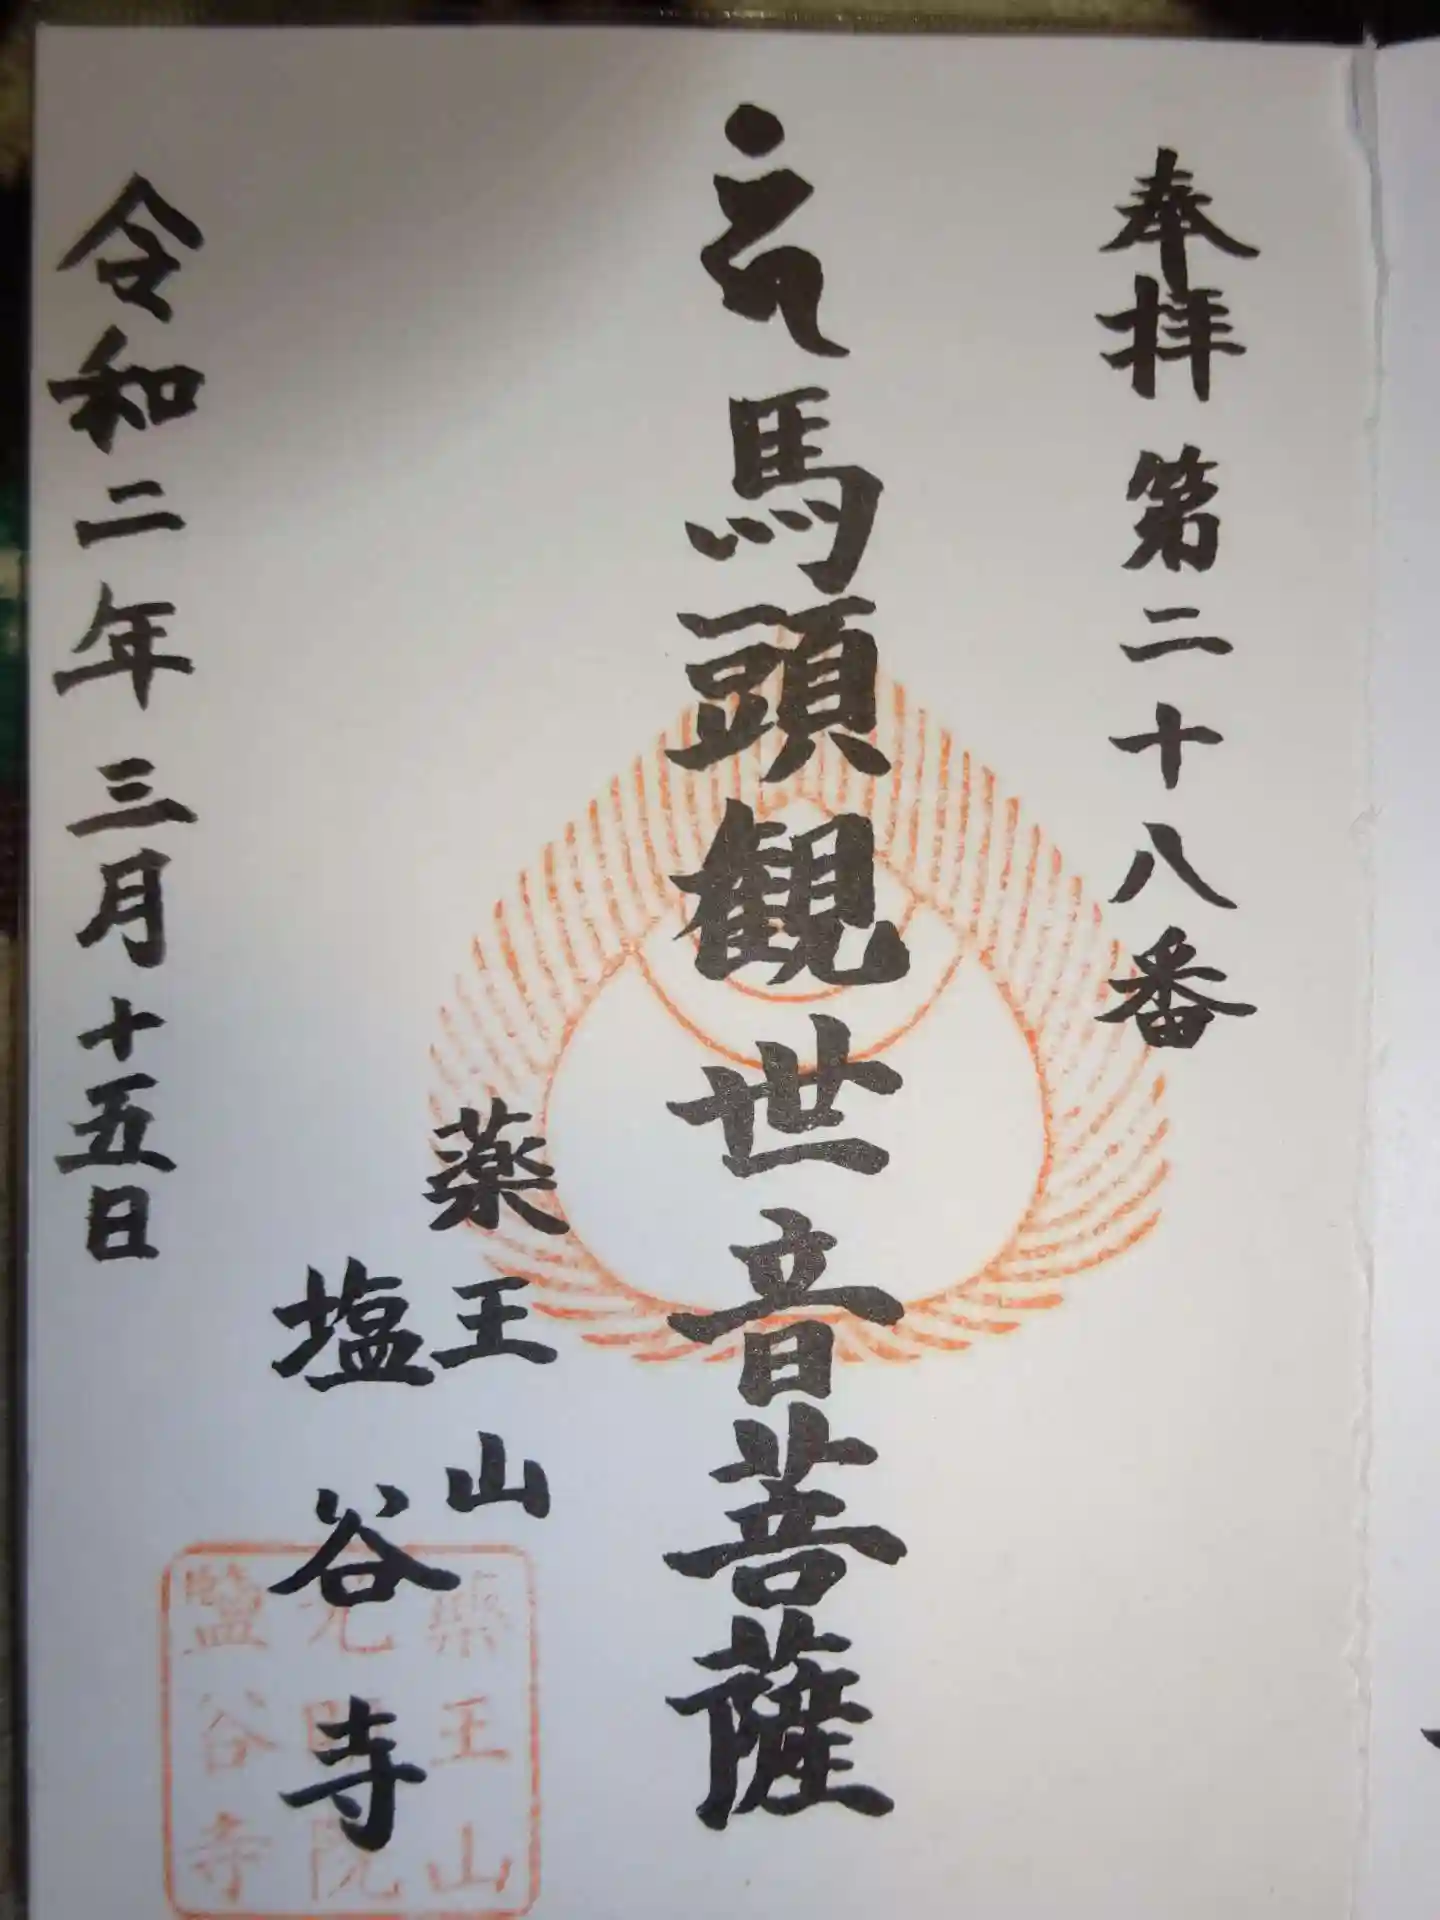 奉拝 第二十八番
馬頭観世音菩薩
薬王山
塩谷寺
令和二年三月十五日
薬王山
光明院
鹽谷寺